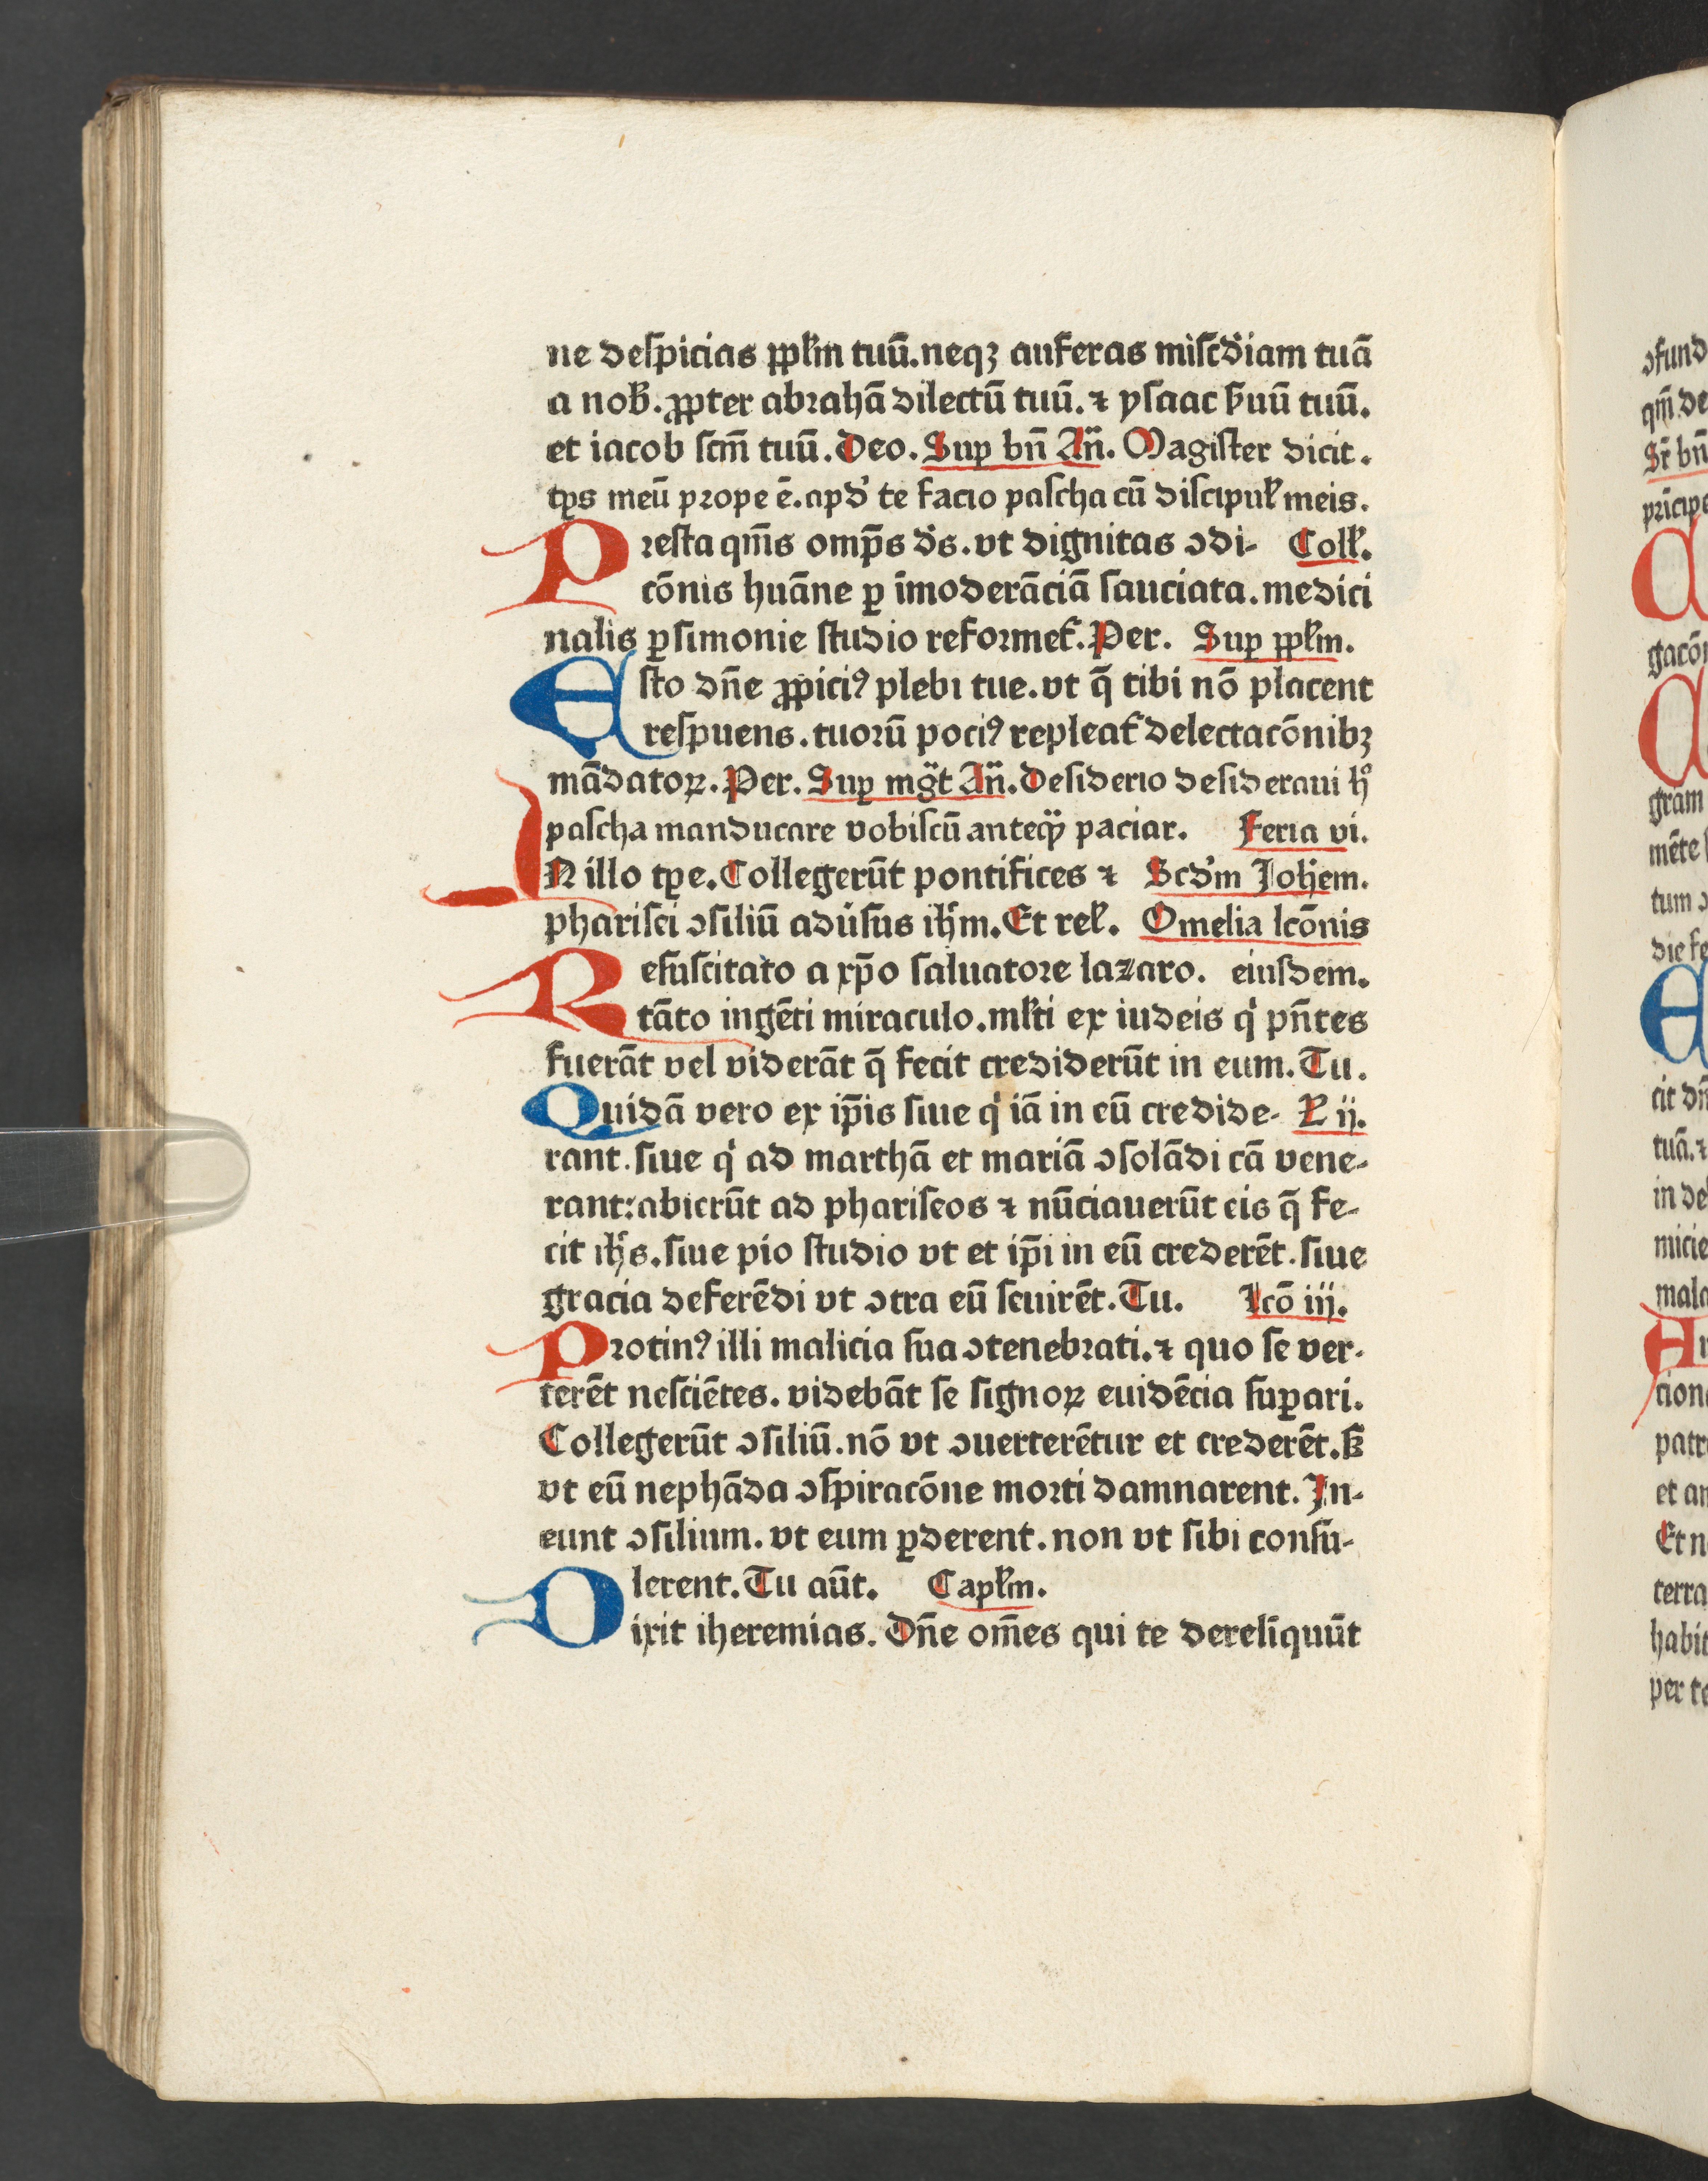 ne deſpicias ꝓpłm tuū. neqꝫ auferas miſcd̓iam tuā
a nob̵. ꝓpter abꝛahā dilectū tuū. ⁊ yſaac ẜuū tuū.
et iacob ſcm̄ tuū. Deo. Suꝑ bn̄ An̄. Magiſter dicit.
tꝑs meū pꝛope ē. apd̓ te facio paſcha cū diſcipuł meis.
Pꝛeſta qm̄s omp̄s ds̄. vt dignitas ꝯdi- Coll̵.
cōnis huāne ꝑ īmoderāciā ſauciata. medici
nalis ꝑſimonie ſtudio refoꝛmet̄. Per. Suꝑ ꝓpłm.
Eſto dn̄e ꝓpiciꝰ plebi tue. vt q̄ tibi nō placent
reſpuens. tuoꝛū pociꝰ repleat̄ delectacōnibꝫ
mādatoꝝ. Per. Suꝑ mg̅t An̄. Deſiderio deſideraui hͦ
paſcha manducare vobiſcū anteqͣꝫ paciar. Feria vi.
IN illo tꝑe. Collegerūt pontifices ⁊ Scd̓m Joh̄em.
phariſei ꝯſiliū adu̓ſus ih̄m. Et reł. Omelia lcōnis
Reſuſcitato a xp̄o ſaluatoꝛe lazaro. eiuſdem.
tāto ingēti miraculo. młti ex iudeis qͥ pn̄tes
fuerāt vel viderāt q̄ fecit crediderūt in eum. Tu.
Quidā vero ex ip̄is ſiue qͥ iā in eū credide- Ł ij.
rant. ſiue qͥ ad marthā et mariā ꝯſolādi cā vene-
rant: abierūt ad phariſeos ⁊ nūciauerūt eis q̄ fe-
cit ih̄s. ſiue pio ſtudio vt et ip̄i in eū crederēt. ſiue
gracia deferēdi vt ꝯtra eū ſeuirēt. Tu. Lcō iij.
Pꝛotinꝰ illi malicia ſua ꝯtenebꝛati. ⁊ quo ſe ver-
terēt neſciētes. videbāt ſe ſignoꝝ euidēcia ſuꝑari.
Collegerūt ꝯſiliū. nō vt ꝯuerterētur et crederēt. ſꝫ
vt eū nephāda ꝯſpiracōne moꝛti damnarent. In-
eunt ꝯſilium. vt eum ꝑderent. non vt ſibi conſu-
lerent. Tu aūt. Capłm.
Dixit iheremias. Dn̄e om̄es qui te derelīquūt
ꝯfund
qm̄ de
Sꝛ̄ bn̄
pꝛīcipe
gacōn
gram
mēte
tum
die fe
cit dn̄
tuā. ⁊
in de
micie
mala
cion
patr
et an
Et n
terra
habit
per te